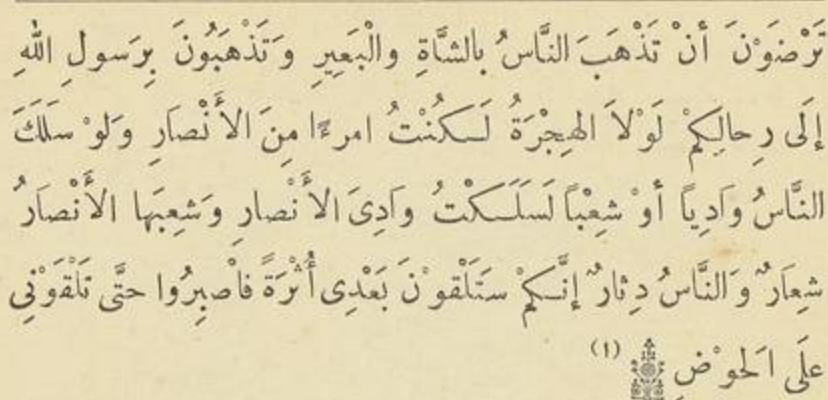 تَرْضَوْنَ أنْ تَذْهَبَ النَّاسُ بالشَّاةِ والْبَعِيرِ وَتَذْهَبُونَ بِرَسولِ اللهِ
إلَى رِحالِكمْ لَوْلاَ الهِجْرَةُ لَـكُنْتُ امرءًا مِنَ الأَنْصارِ وَلوْ سَلَكَ
النَّاسُ وَادِياً أوْ شِعْباً لَسَلَـكْتُ وَادِىَ الأَنْصارِ وَشِعِبَها الأَنْصارُ
شِعَارٌ وَالنَّاسُ دِثارٌ إنَّـكمْ سَتَلْقوْنَ بَعْدِى أُثْرَةً فاْصبِرُوا حتَّى تَلْقَوْنِى
علَى الَحوْضِ (١)